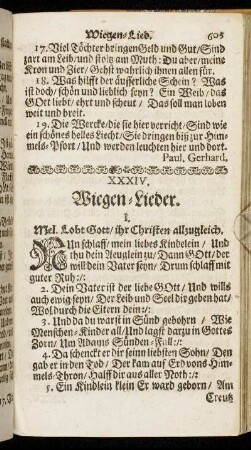 Wiegen-Lied. 605
17. Viel Töchter bringen Geld und Gut/ Sind
zart am Leib/ und stoltz am Muth: Du aber/ meine
Kron und Zier/ Gehst wahrlich ihnen allen für.
18. Was hilfft der äusserliche Schein? Was
ist doch/ schön und lieblich seyn? Ein Weib/ das
GOtt liebt/ ehrt und scheut/ Das soll man loben
weit und breit.
19. Die Wercke/ die sie hier verricht/ Sind wie
ein schönes helles Liecht/ Sie dringen biß zur Him-
mels-Pfort/ Und werden leuchten hier und dort.
Paul. Gerhard.
XXXIV.
Wiegen-Lieder.
I.
Mel. Lobt Gott/ ihr Christen allzugleich.
NUn schlaff/ mein liebes Kindelein/ Und
thu dein Aeuglein zu/ Dann GOtt/ der
will dein Vater seyn/ Drum schlaff mit
guter Ruh :/:
2. Dein Vater ist der liebe GOtt/ Und wills
auch ewig seyn/ Der Leib und Seel dir geben hat/
Wol durch die Eltern dein :/:
3. Und da du warst in Sünd gebohrn/ Wie
Menschen-Kinder all/ Und lagst darzu in Gottes
Zorn/ Um Adams Sünden-Fall :/:
4. Da schenckt er dir seinn liebsten Sohn/ Den
gab er in den Tod/ Der kam auf Erd von Him-
mels-Thron/ Halff dir aus aller Noth :/:
5. Ein Kindlein klein Er ward geborn/ Am
Creutz